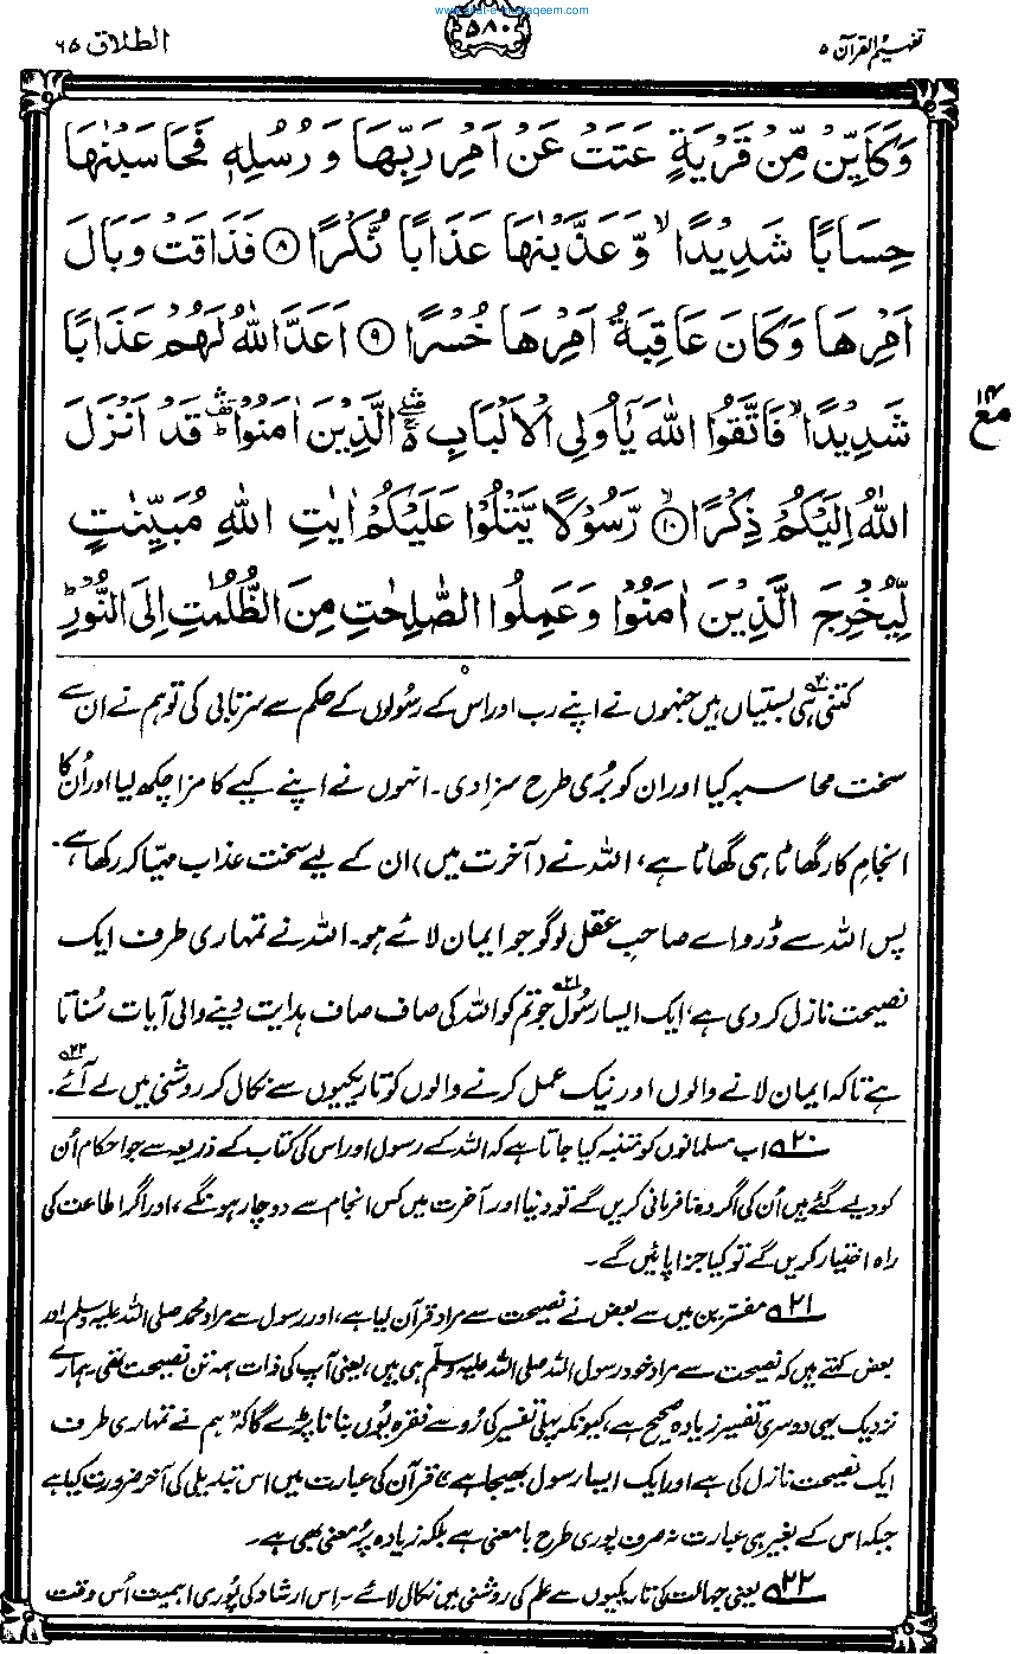 www.sirat-e-mustaqeem.com
تفہیم القرآن ۵
۵۸۰
الطلاق ۶۵
وَكَاَيِّنْ مِّنْ قَرْيَةٍ عَتَتْ عَنْ اَمْرِ رَبِّهَا وَرُسُلِهٖ فَحَاسَبْنٰهَا
حِسَابًا شَدِيْدًاۙ وَّعَذَّبْنٰهَا عَذَابًا نُّكْرًا ۝۸ فَذَاقَتْ وَبَالَ
اَمْرِهَا وَكَانَ عَاقِبَةُ اَمْرِهَا خُسْرًا ۝۹ اَعَدَّ اللّٰهُ لَهُمْ عَذَابًا
شَدِيْدًاۙ فَاتَّقُوا اللّٰهَ يٰٓاُولِي الْاَلْبَابِ الَّذِيْنَ اٰمَنُوْا قَدْ اَنْزَلَ
مع ۱۴
اللّٰهُ اِلَيْكُمْ ذِكْرًا ۝۱۰ۙ رَّسُوْلًا يَّتْلُوْا عَلَيْكُمْ اٰيٰتِ اللّٰهِ مُبَيِّنٰتٍ
لِّيُخْرِجَ الَّذِيْنَ اٰمَنُوْا وَعَمِلُوا الصّٰلِحٰتِ مِنَ الظُّلُمٰتِ اِلَى النُّوْرِؕ
کتنی ہی ۲۰ بستیاں ہیں جنہوں نے اپنے رب اور اس کے رسُولوں کے حکم سے سرتابی کی تو ہم نے ان سے
سخت محاسبہ کیا اور ان کو بُری طرح سزا دی۔ انہوں نے اپنے کیے کا مزا چکھ لیا اور اُن کا
انجامِ کار گھاٹا ہی گھاٹا ہے، اللہ نے (آخرت میں) ان کے لیے سخت عذاب مہیّا کر رکھا ہے۔
پس اللہ سے ڈرو اے صاحبِ عقل لوگو جو ایمان لائے ہو۔ اللہ نے تمہاری طرف ایک
نصیحت نازل کر دی ہے، ایک ایسا رسُول ۲۱ جو تم کو اللہ کی صاف صاف ہدایت دینے والی آیات سُناتا
ہے تاکہ ایمان لانے والوں اور نیک عمل کرنے والوں کو تاریکیوں سے نکال کر روشنی میں لے آئے۔ ۲۲
۲۰ اب مسلمانوں کو متنبہ کیا جاتا ہے کہ اللہ کے رسول اور اس کی کتاب کے ذریعہ سے جو احکام اُن
کو دیے گئے ہیں اُن کی اگر وہ نافرمانی کریں گے تو دنیا اور آخرت میں کس انجام سے دوچار ہونگے، اور اگر اطاعت کی
راہ اختیار کریں گے تو کیا جزا پائیں گے۔
۲۱ مفسّرین میں سے بعض نے نصیحت سے مراد قرآن لیا ہے، اور رسول سے مراد محمد صلی اللہ علیہ وسلم اور
بعض کہتے ہیں کہ نصیحت سے مراد خود رسول اللہ صلی اللہ علیہ وسلم ہی ہیں، یعنی آپ کی ذات ہمہ تن نصیحت تھی۔ ہمارے
نزدیک یہی دوسری تفسیر زیادہ صحیح ہے، کیونکہ پہلی تفسیر کی رُو سے فقرہ یُوں بنانا پڑے گا کہ "ہم نے تمہاری طرف
ایک نصیحت نازل کی ہے اور ایک ایسا رسول بھیجا ہے"۔ قرآن کی عبارت میں اس تبدیلی کی آخر ضرورت کیا ہے
جبکہ اس کے بغیر ہی عبارت نہ صرف پوری طرح بامعنی ہے بلکہ زیادہ پُر معنی بھی ہے۔
۲۲ یعنی جہالت کی تاریکیوں سے علم کی روشنی میں نکال لائے۔ اس ارشاد کی پُوری اہمیت اُس وقت